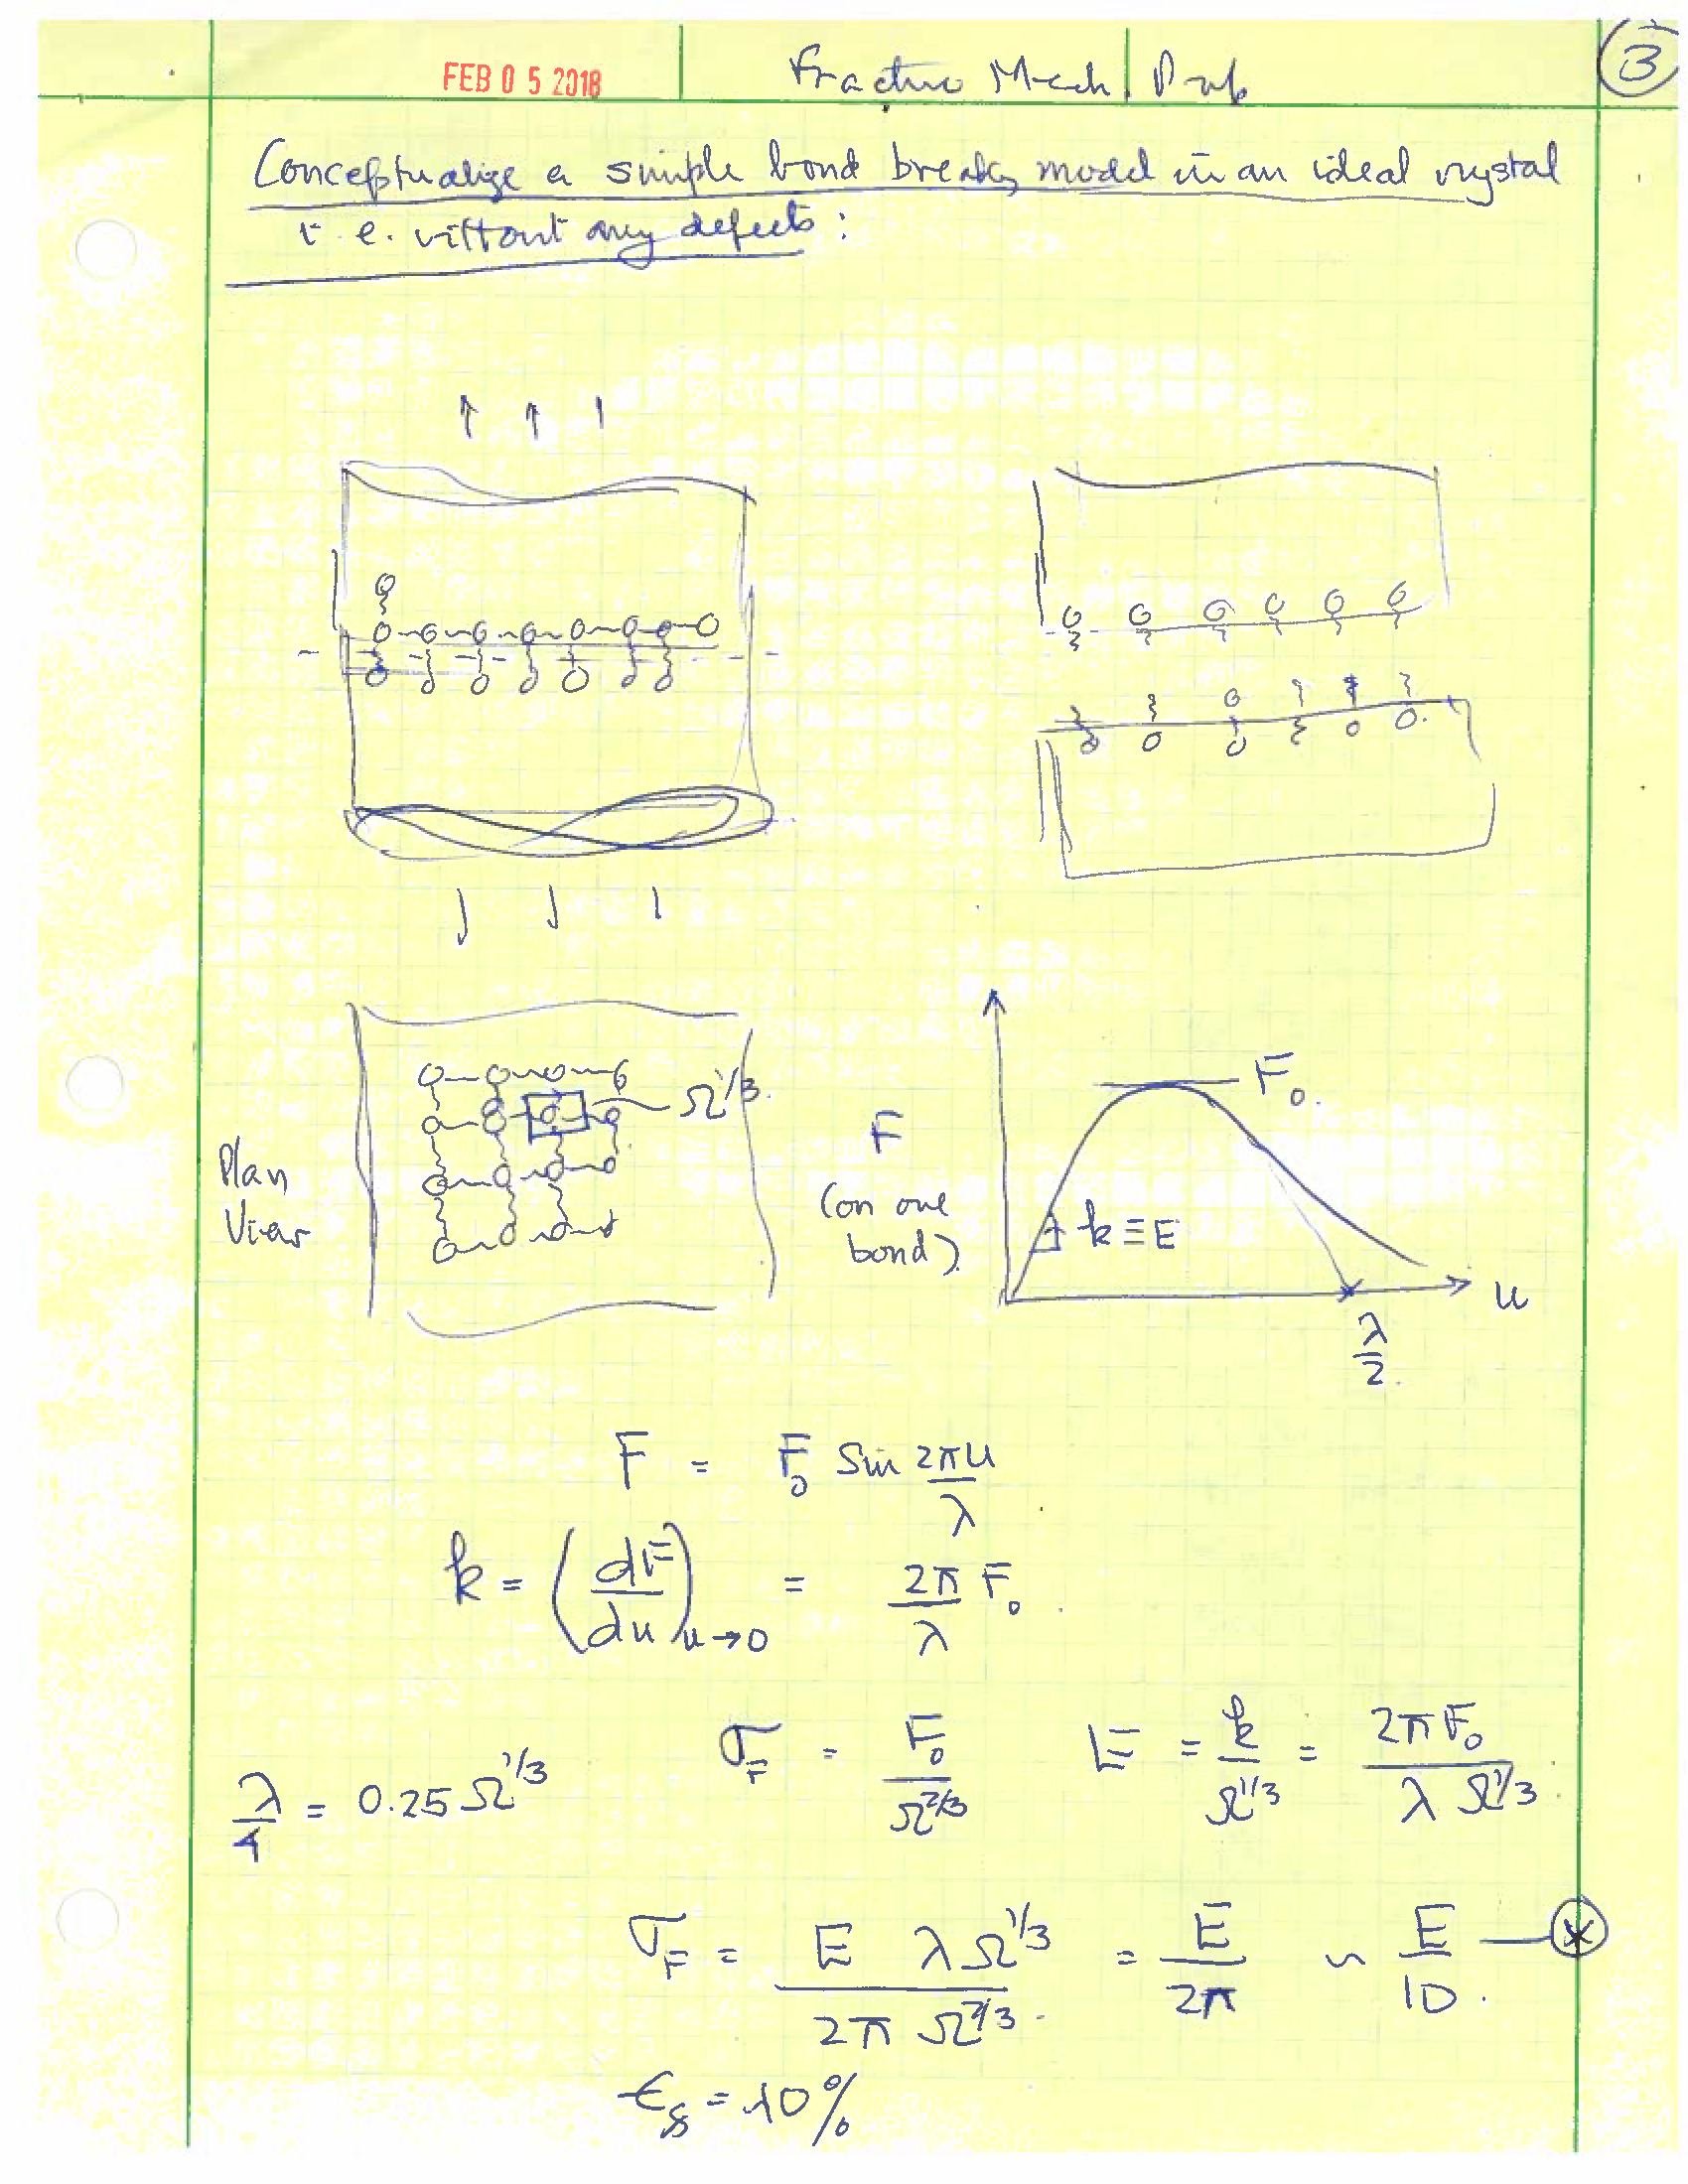 FEB 0 5 2018
Fracture Mech
3
Conceptualize a simple bond breaking model in an ideal crystal
i.e. without any defects:
Plan
View
Ω^1/3
F
(on one
bond)
F₀
k ≡ E
u
λ/2
F = F₀ Sin 2πu/λ
k = (dF/du)u→0 = 2π/λ F₀
λ/4 = 0.25 Ω^1/3
σ_F = F₀/Ω^2/3
E = k/Ω^1/3 = 2πF₀/λ Ω^1/3
σ_F = E λ Ω^1/3 / 2π Ω^2/3 = E/2π ~ E/10 — *
= 10%